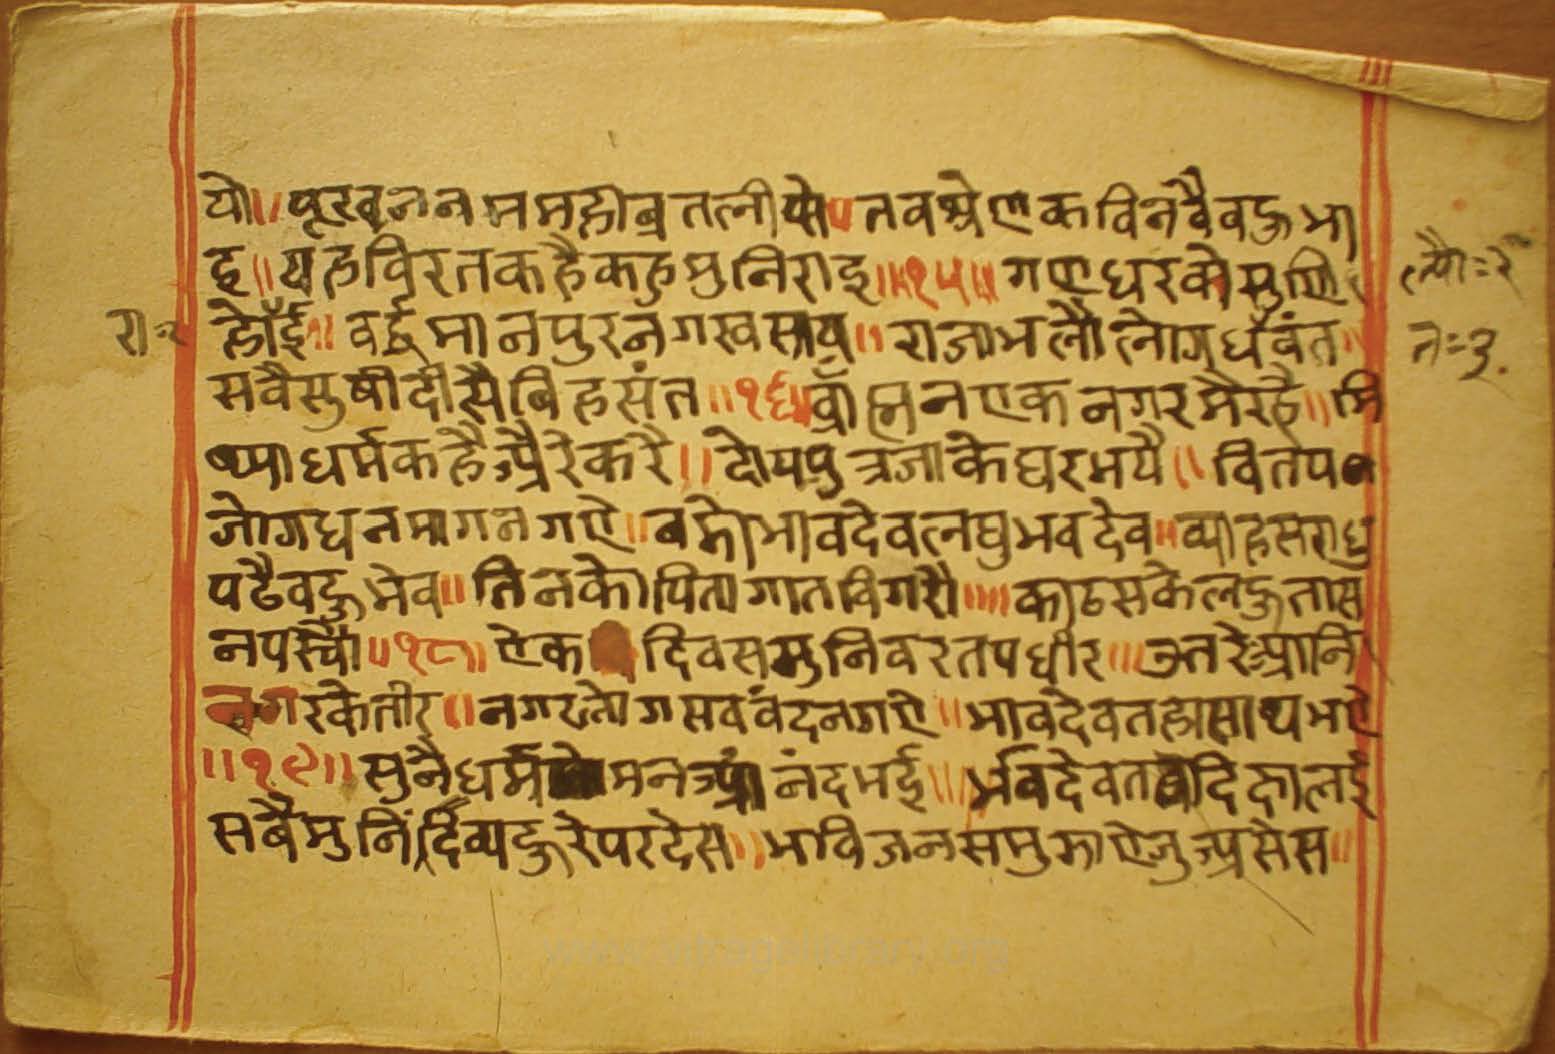 यो॥ पूरवजनम महाव्रत लीयो॥ तव श्रेणिक विनवै वहु भा
इ॥ यह विरतक है कहु मुनिराइ॥१५॥ गणधर वोले सुणि
लोई॥ वर्द्धमानपुर नगर वसाय॥ राजा भलौ लोग धर्मवंत॥
सवै सुषी दीसै बिहसंत॥१६॥ व्राँह्मन एक नगर मै रहै॥ मि
थ्या धर्म कहै अरै करै॥ दोय पुत्र जा के घर भयै॥ वितप
जोग धन मागन गऐ॥ वडो भावदेव लघु भवदेव॥ व्याहसराधु
पढै वहु भेव॥ तिनको पिता गात विगरौ॥ काठ सकेलहु तास
न पर्स्यौ॥१८॥ ऐक दिवस मुनिवर तप धीर॥ उतरे आनि
नगर के तीर॥ नगर लोग सव वंदन गऐ॥ भावदेव तहा साथ भऐ
॥१९॥ सुनै धर्म मन आनंद भई॥ भवदेव तव दिक्षा लई
सबै मुनिंदि व्यहुरे परदेस॥ भावि जन समुझाऐ जु असैस॥
रा=२
ल्यौ=२
न=३.
www.vitragalibrary.org